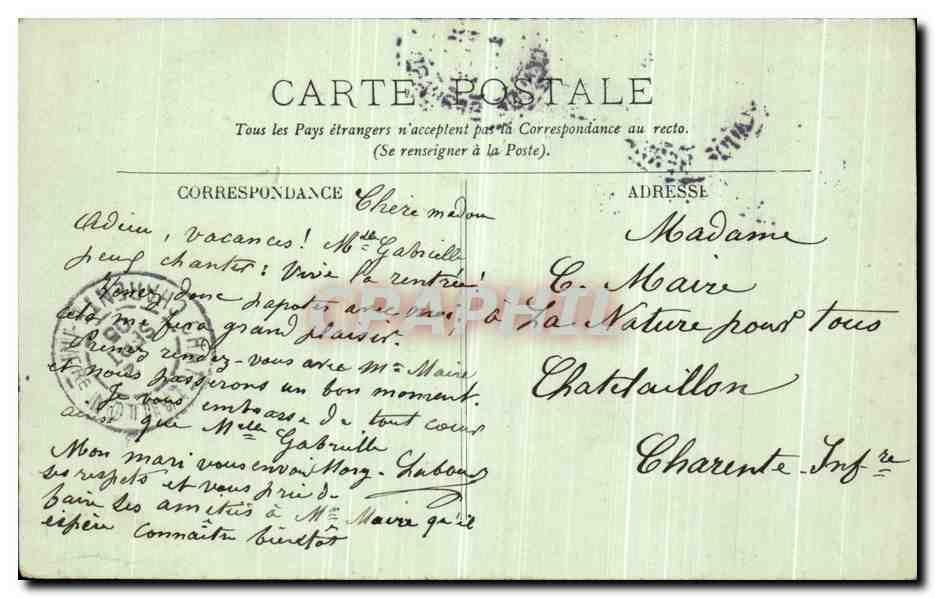 CARTE POSTALE
Tous les Pays étrangers n'acceptent pas la Correspondance au recto.
(Se renseigner à la Poste).
CORRESPONDANCE
ADRESSE
Chère madame
Adieu, vacances! Mlle Gabrielle
peut chanter: Vive la rentrée!
Venez donc papoter avec nous,
cela me fera grand plaisir.
Prenez rendez-vous avec Me Maire
et nous passerons un bon moment.
Je vous embrasse de tout cœur
ainsi que Melle Gabrielle
Mon mari vous envoi
ses respects et vous prie de
faire ses amitiés à Mr Maire qu'il
espère connaître bientôt
Madame
C. Maire
à La Nature pour tous
Chatelaillon
Charente-Infre
CPAPHIL